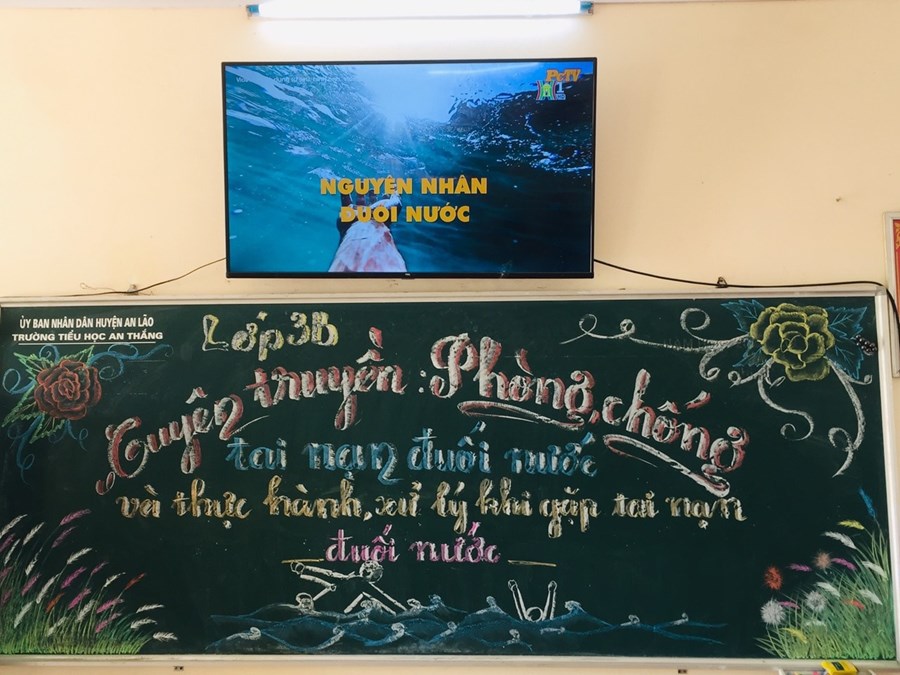 PCTV
H1
NGUYÊN NHÂN
ĐUỐI NƯỚC
ỦY BAN NHÂN DÂN HUYỆN AN LÃO
TRƯỜNG TIỂU HỌC AN THẮNG
Lớp 3B
Tuyên truyền: Phòng, chống
tai nạn đuối nước
và thực hành, xử lý khi gặp tai nạn
đuối nước